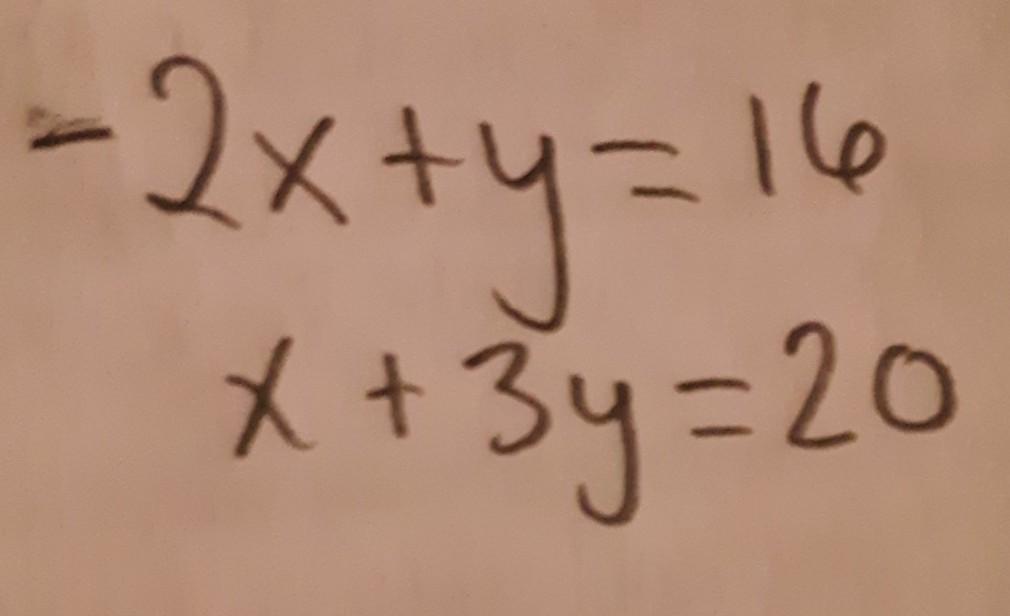 -2x+y=16
x+3y=20